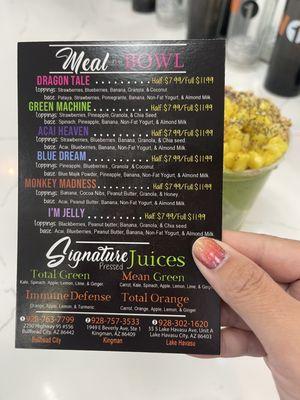 Meal IN A BOWL
DRAGON TALE ........... Half $7.99/Full $11.99
toppings: Strawberries, Blueberries, Banana, Granola, & Coconut
base: Pataya, Strawberries, Pomegranite, Banana, Non-Fat Yogurt, & Almond Milk
GREEN MACHINE ........... Half $7.99/Full $11.99
toppings: Strawberries, Pineapple, Granola, & Chia Seed
base: Spinach, Pineapple, Banana, Non-Fat Yogurt, & Almond Milk
ACAI HEAVEN ........... Half $7.99/Full $11.99
toppings: Strawberries, Blueberries, Banana, Granola, & Chia seed
base: Acai, Blueberries, Banana, Non-Fat Yogurt, & Almond Milk
BLUE DREAM ........... Half $7.99/Full $11.99
toppings: Pineapple, Blueberries, Granola, & Coconut
base: Blue Majik Powder, Pineapple, Banana, Non-Fat Yogurt, & Almond Milk
MONKEY MADNESS ........... Half $7.99/Full $11.99
toppings: Banana, Cocoa Nibs, Peanut Butter, Granola, & Honey
base: Acai, Peanut Butter, Banana, Non-Fat Yogurt, & Almond Milk
I'M JELLY ........... Half $7.99/Full $11.99
toppings: Blackberries, Peanut butter, Banana, Granola, & Chia Seed
base: Acai, Blueberries, Peanut Butter, Banana, Non-Fat Yogurt, & Almond Milk
Signature Pressed Juices
Total Green Mean Green
Kale, Spinach, Apple, Lemon, Lime, & Ginger Carrot, Kale, Spinach, Apple, Lemon, & Ginger
Immune Defense Total Orange
Orange, Apple, Lemon, & Turmeric Carrot, Orange, Apple, Lemon, & Ginger
928-763-7799 928-757-3533 928-302-1620
2250 Highway 95 #556 1949 E Beverly Ave, Ste 1 55 S Lake Havasu Ave, Unit A
Bullhead City, AZ 86442 Kingman, AZ 86409 Lake Havasu City, AZ 86403
Bullhead City Kingman Lake Havasu